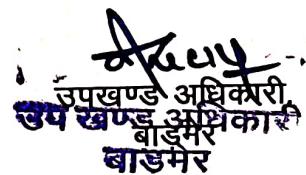 उपखण्ड अधिकारी,
उप खण्ड अधिकारी
बाडमेर
बाडमेर